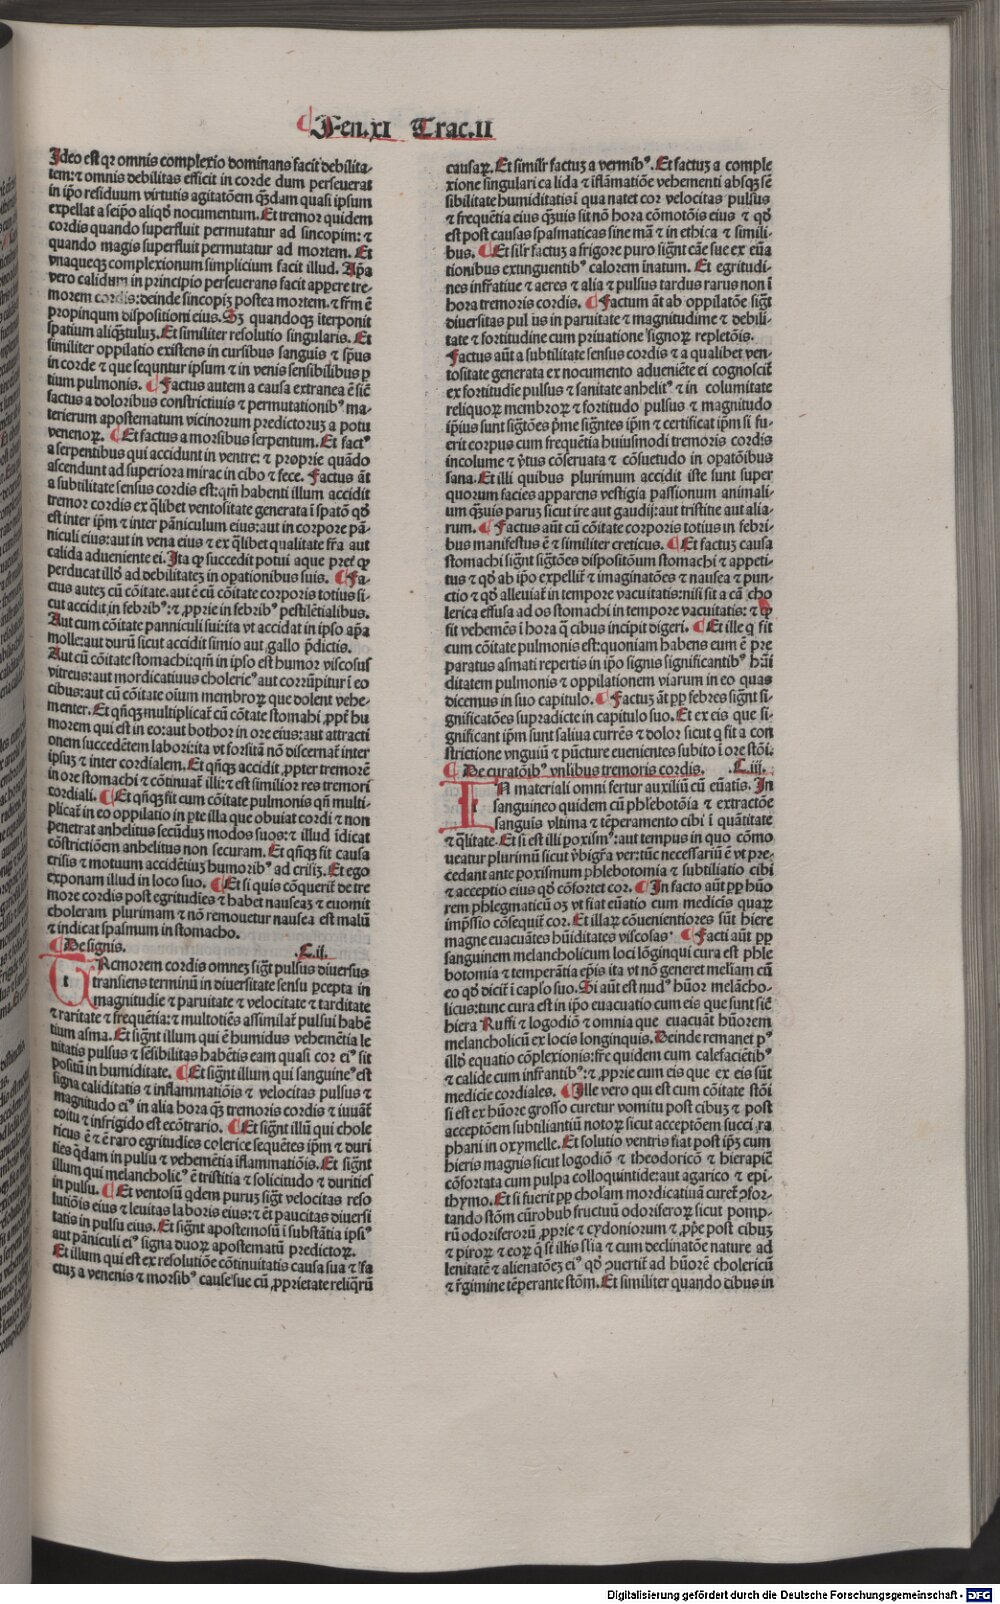 Fen.XI Trac.II
Ideo est qꝛ omnis complexio dominans facit debilita⸗
tem:⁊ omnis debilitas efficit in corde dum perseuerat
in ip̄o residuum virtutis agitatōem q̄ꝫdam quasi ipsum
expellat a seip̄o aliqḋ nocumentum. Et tremor quidem
cordis quando superfluit permutatur ad sincopim: ⁊
quando magis superfluit permutatur ad mortem. Et
vnaqueqꝫ complexionum simplicium facit illud. Ap̄a
vero calidum in principio perseuerans facit appere tre⸗
morem cordis:deinde sincopiꝫ postea mortem. ⁊ fr̄m ē
propinqum dispositioni eius. Sꝫ quandoqꝫ īterponit
spatium aliqͣtuluꝫ. Et similiter resolutio singularis. Et
similiter oppilatio existens in cursibus sanguis ⁊ sp̄us
in corde ⁊ que sequntur ipsum ⁊ in venis sensibilibus ꝑ
tium pulmonis. ¶ Factus autem a causa extranea ē sic̄
factus a doloribus constrictiuis ⁊ permutationibꝰ ma⸗
terierum apostematum vicinorum predictoruꝫ a potu
venenoꝝ. ¶ Et factus a morsibus serpentum. Et factꝰ
a serpentibus qui accidunt in ventre: ⁊ proprie quādo
ascendunt ad superiora mirac in cibo ⁊ fece. Factus āt
a subtilitate sensus cordis est:qm̄ habenti illum accidit
tremor cordis ex q̄libet ventositate generata ī spatō qḋ
est inter ip̄m ⁊ inter pāniculum eius:aut in corpore pā⸗
niculi eius:aut in vena eius ⁊ ex q̄libet qualitate fr̄a aut
calida adueniente ei. Ita ꝙ succedit potui aque pret̄ ꝙ
perducat illḋ ad debilitateꝫ in opationibus suis. ¶ Fa⸗
ctus auteꝫ cū cōitate. aut ē cū cōitate corporis totius si⸗
cut accidit in febribꝰ:⁊ ꝓprie in febribꝰ pestilētialibus.
Aut cum cōitate panniculi sui:ita vt accidat in ipso ap̄a
molle:aut durū sicut accidit simio aut gallo p̄dictis.
Aut cū cōitate stomachi:qm̄ in ipso est humor viscosus
vitreus:aut mordicatiuus cholericꝰ aut corrūpitur ī eo
cibus:aut cū cōitate oīum membroꝝ que dolent vehe⸗
menter. Et qn̄qꝫ multiplicat̄ cū cōtate stomahi ,ppt̄ hu
morem qui est in eo:aut bothor in ore eius:aut attracti
onem succedētem labori:ita vt forsitā nō discernat̄ inter
ipsuꝫ ⁊ inter cordialem. Et qn̄qꝫ accidit ꝓpter tremorē
in ore stomachi ⁊ cōtinuat̄ illi:⁊ est similior res tremori
cordiali. ¶ Et qn̄qꝫ fit cum cōitate pulmonis qn̄ multi⸗
plicat̄ in eo oppilatio in ꝑte illa que obuiat cordi ⁊ non
penetrat anhelitus secūduꝫ modos suos:⁊ illud īdicat
cōstrictiōem anhelitus non securam. Et qn̄qꝫ fit causa
crisis ⁊ motuum accidētiuꝫ humoribꝰ ad crisiꝫ. Et ego
exponam illud in loco suo. ¶ Et si quis cōquerit̄ de tre
more cordis post egritudies ⁊ habet nauseaꝫ ⁊ euomit
choleram plurimam ⁊ nō remouetur nausea est malū
⁊ indicat spasmum in stomacho.
¶ De signis. .C.ii.
TRemorem cordis omneꝫ sigt̄ pulsus diuersus
transiens terminū in diuersitate sensu ꝑcepta in
magnitudie ⁊ paruitate ⁊ velocitate ⁊ tarditate
⁊ raritate ⁊ frequētia:⁊ multotiēs assimilat̄ pulsui habē
tium asma. Et sigt̄ illum qui ē humidus vehemētia le
uitatis pulsus ⁊ sēsibilitas habētis eam quasi cor eiꝰ sit
positū in humiditate. ¶ Et signt̄ illum qui sanguineꝰ est
signa caliditatis ⁊ inflammatiōis ⁊ velocitas pulsus ⁊
magnitudo eiꝰ in alia hora qͣꝫ tremoris cordis ⁊ iuuāt̄
coitu ⁊ infrigido est ecōtrario. ¶ Et signt̄ illū qui chole
ricus ē ⁊ ē raro egritudies colerice sequētes ip̄m ⁊ duri
ties q̄dam in pulsu ⁊ vehemētia iflammatiōis. Et signt̄
illum qui melancholicꝰ ē tristitia ⁊ solicitudo ⁊ durities
in pulsu. ¶ Et ventosū qdem puruꝫ signt̄ velocitas reso
lutiōis eius ⁊ leuitas laboris eius:⁊ ēt paucitas diuersi
tatis in pulsu eius. Et signt̄ apostemosū ī substātia ipsiꝰ
aut pāniculi eiꝰ signa duoꝝ apostematū predictoꝝ.
Et illum qui est ex resolutiōe cōtinuitatis causa sua ⁊ fa
ctuꝫ a venenis ⁊ morsibꝰ cause sue cū ꝓprietate reliqͦrū
causaꝝ. Et simil̄r factuꝫ a vermibꝰ. Et factuꝫ a comple
xione singulari ca lida ⁊ īflāmatiōe vehementi absqꝫ sē
sibilitate humiditatis ī qua natet cor velocitas pulsus
⁊ frequētia eius qͣꝫuis sit nō hora cōmotōis eius ⁊ qḋ
est post causas spasmaticas sine mā ⁊ in ethica ⁊ simili⸗
bus. ¶ Et sil̄r factuꝫ a frigore puro signt̄ cāe sue ex eūa
tionibus extinguentibꝰ calorem inatum. Et egritudi⸗
nes infr̄atiue ⁊ aeres ⁊ alia ⁊ pulsus tardus rarus non ī
hora tremoris cordis. ¶ Factum āt ab oppilatōe sigt̄
diuersitas pul us in paruitate ⁊ magnitudime ⁊ debili⸗
tate ⁊ fortitudine cum priuatione signoꝝ repletōis.
Factus aūt a subtilitate sensus cordis ⁊ a qualibet ven⸗
tositate generata ex nocumento adueniēte ei cognoscit̄
ex fortitudīe pulsus ⁊ sanitate anhelitꝰ ⁊ in columitate
reliquoꝝ membroꝝ ⁊ fortitudo pulsus ⁊ magnitudo
ip̄ius sunt sigtōes p̄me sigtes ip̄m ⁊ certificat ip̄m si fu⸗
erit corpus cum frequētia huiusmodi tremoris cordis
incolume ⁊ v̄tus cōseruata ⁊ cōsuetudo in opatōibus
sana. Et illi quibus plurimum accidit iste sunt super
quorum facies apparens vestigia passionum animali⸗
um qͣꝫuis paruꝫ sicut ire aut gaudij:aut tristitie aut alia⸗
rum. ¶ Factus aūt cū cōitate corporis totius in febri⸗
bus manifestus ē ⁊ similiter creticus. ¶ Et factuꝫ causa
stomachi signt̄ sigtōes dispositōum stomachi ⁊ appeti⸗
tus ⁊ qḋ ab ip̄o expellit̄ ⁊ imaginatōes ⁊ nausea ⁊ pun⸗
ctio ⁊ qḋ alleuiat̄ in tempore vacuitatis:nisi sit a cā cho
lerica effusa ad os stomachi in tempore vacuitatis: ⁊ ꝙ
sit vehemēs ī hora q̄ cibus incipit digeri. ¶ Et ille q̄ fit
cum cōitate pulmonis est:quoniam habens eum ē pre
paratus asmati repertis in ip̄o signis significantibꝰ hūi
ditatem pulmonis ⁊ oppilationem viarum in eo quas
dicemus in suo capitulo. ¶ Factuꝫ āt pp febres signt̄ si⸗
gnificatōes supradicte in capitulo suo. Et ex eis que si⸗
gnificant ip̄m sunt saliua currēs ⁊ dolor sicut q̄ fit a con
strictione vnguiū ⁊ pūcture euenientes subito ī ore stōi.
¶ De curatōibꝰ vn̄libus tremoris cordis. .C.iii.
IN materiali omni fertur auxiliū cū eūatis. In
sanguineo quidem cū phlebotōia ⁊ extractōe
sanguis vltima ⁊ tēperamento cibi ī quātitate
⁊ q̄litate. Et si est illi ꝑoxismꝰ:aut tempus in quo cōmo
ueatur plurimū sicut v̄bigr̄a ver:tūc necessariū ē vt pre⸗
cedant ante ꝑoxismum phlebotomia ⁊ subtiliatio cibi
⁊ acceptio eius qḋ cōfortet cor. ¶ In facto aūt ꝑp hūo
rem phlegmaticū oꝫ vt fiat eūatio cum medicis quaꝝ
imp̄ssio cōsequit̄ cor. Et illaꝝ cōuenientiores sūt hiere
magne euacuātes hūiditates viscosas. ¶ Facti aūt ꝑp
sanguinem melancholicum loci lōginqui cura est phle
botomia ⁊ temperātia epis ita vt nō generet mel̄iam cū
eo qḋ dicit̄ ī cap̄lo suo. Si aūt est nudꝰ hūor melācho⸗
licus:tunc cura est in ip̄o euacuatio cum eis que sunt sic̄
hiera Ruffi ⁊ logodiō ⁊ omnia que euacuāt hūorem
melancholicū ex locis longinquis. Deinde remanet pꝰ
illḋ equatio cōplexionis:fr̄e quidem cum calefaciētibꝰ
⁊ calide cum infr̄antibꝰ:⁊ ꝓprie cum eis que ex eis sūt
medicie cordiales. ¶ Ille vero qui est cum cōitate stōi
si est ex hūore grosso curetur vomitu post cibuꝫ ⁊ post
acceptōem subtiliantiū notoꝝ sicut acceptōem succi ra
phani in oxymelle. Et solutio ventris fiat post ip̄ꝫ cum
hieris magnis sicut logodiō ⁊ theodoricō ⁊ hierapic̄
cōfortata cum pulpa colloquintide:aut agarico ⁊ epi⸗
thymo. Et si fuerit ꝑp cholam mordicatiuā curet̄ ꝯfor⸗
tando stōm cū rob ub fructuū odoriferoꝝ sicut pomp⸗
rū odoriferorū ꝓprie ⁊ cydoniorum ⁊ ꝓpe post cibuꝫ
⁊ piroꝝ ⁊ eoꝝ q̄ st̄ illis slia ⁊ cum declinatōe nature ad
lenitatē ⁊ alienatōeꝫ eiꝰ qḋ ꝯuertit̄ ad hūorē cholericū
⁊ r̄gimine tēperante stōm. Et similiter quando cibus in
Digitalisierung gefördert durch die Deutsche Forschungsgemeinschaft - DFG